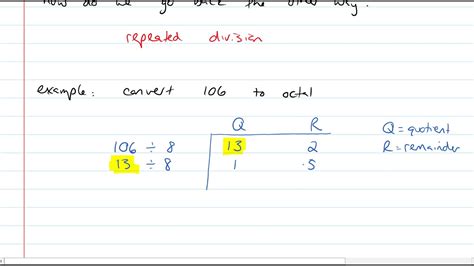 how do we go back the other way?
repeated division
example: convert 106 to octal
Q R
106 ÷ 8 13 2
13 ÷ 8 1 5
Q = quotient
R = remainder